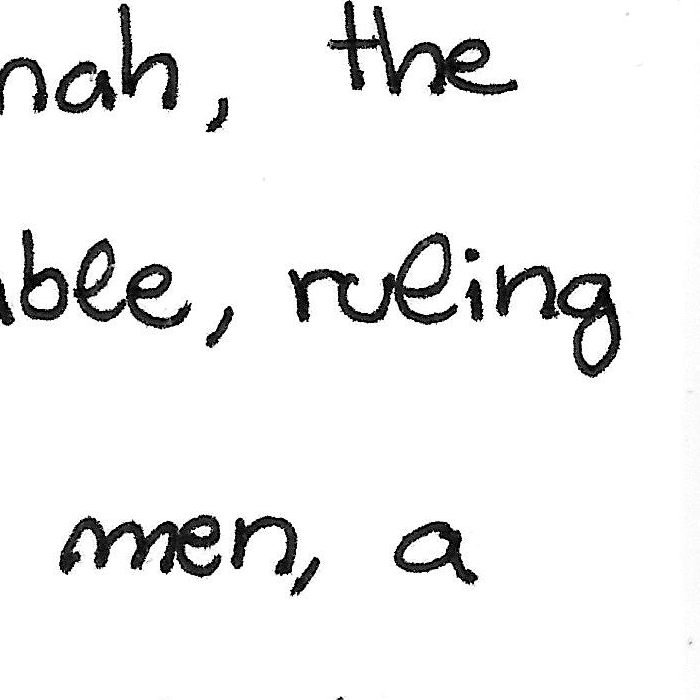 nah, the
ble, ruling
men, a